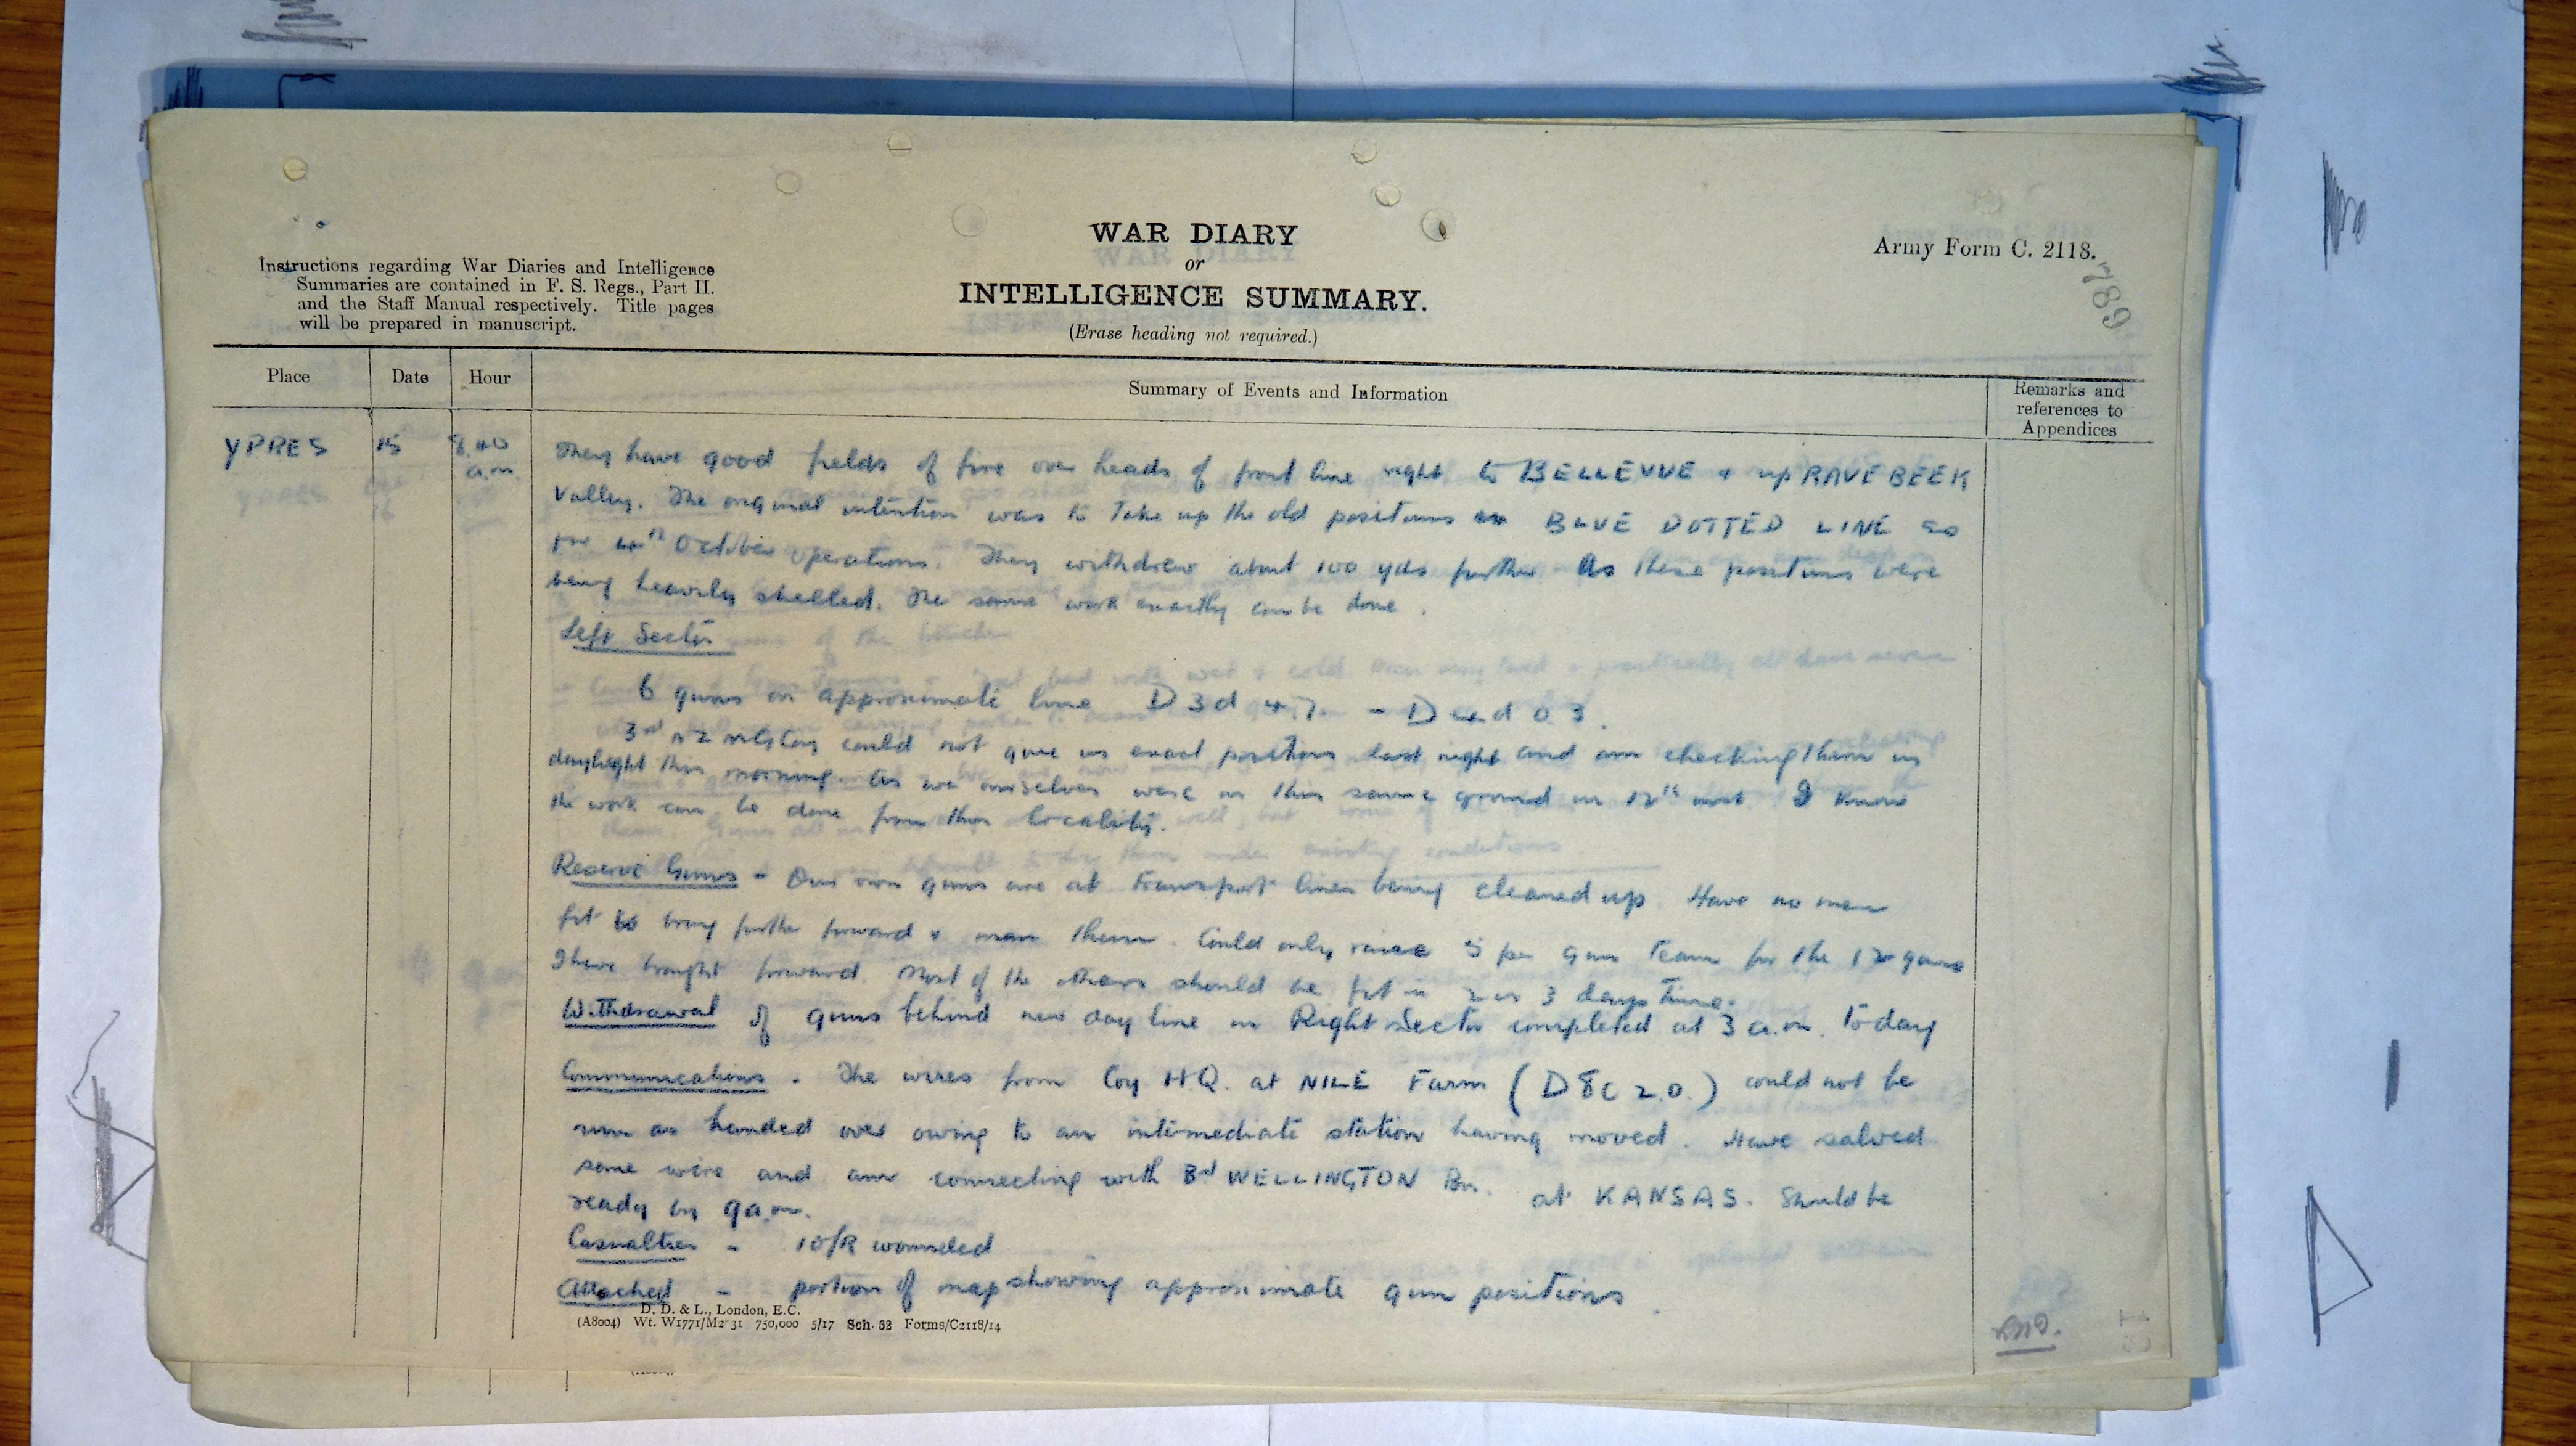 WAR DIARY
or
INTELLIGENCE SUMMARY.
(Erase heading not required.)
Army Form C. 2118.
789
Instructions regarding War Diaries and Intelligence
Summaries are contained in F. S. Regs., Part II.
and the Staff Manual respectively. Title pages
will be prepared in manuscript.
Place Date Hour Summary of Events and Information Remarks and references to Appendices
YPRES 15 8.40 a.m.
They have good fields of fire over heads of front line right to BELLEVUE & up RAVEBEEK
Valley. The original intention was to take up the old positions BLUE DOTTED LINE as
for 4th October operations. They withdrew about 100 yds further as these positions were
being heavily shelled. The same work exactly can be done.
Left Sector
6 guns on approximate line D3d 4.7 - D4d 0.3.
3rd NZ MG Coy could not give us exact positions last night and am checking them in
daylight this morning. As we ourselves were in this same ground on 12th inst. I know
the work can be done from this locality.
Reserve Guns - Our own guns are at Transport lines being cleaned up. Have no men
fit to bring further forward & man them. Could only raise 5 per gun team for the 12 guns
I have brought forward. Most of the others should be fit in 2 or 3 days time.
Withdrawal of guns behind new day line in Right Sector completed at 3 a.m. today
Communications. The wires from Coy HQ. at NILE Farm (D8c 2.0.) could not be
run as handed over owing to an intermediate station having moved. Have salved
some wire and am connecting with 3rd WELLINGTON Bn. at KANSAS. Should be
ready by 9 a.m.
Casualties - 1 O/R wounded
Attached - portion of map showing approximate gun positions.
D. D. & L., London, E.C.
(A8004) Wt. W1771/M2 31 750,000 5/17 Sch. 52 Forms/C2118/14